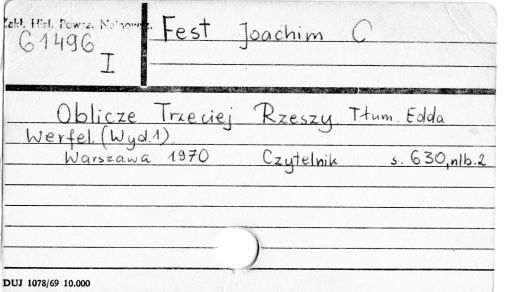 Zakł. Hist. Powsz. Najnowsz.
61496
I
Fest Joachim C
Oblicze Trzeciej Rzeszy Tłum. Edda
Werfel. (Wyd.1)
Warszawa 1970 Czytelnik s. 630, nlb. 2
DUJ 1078/69 10.000